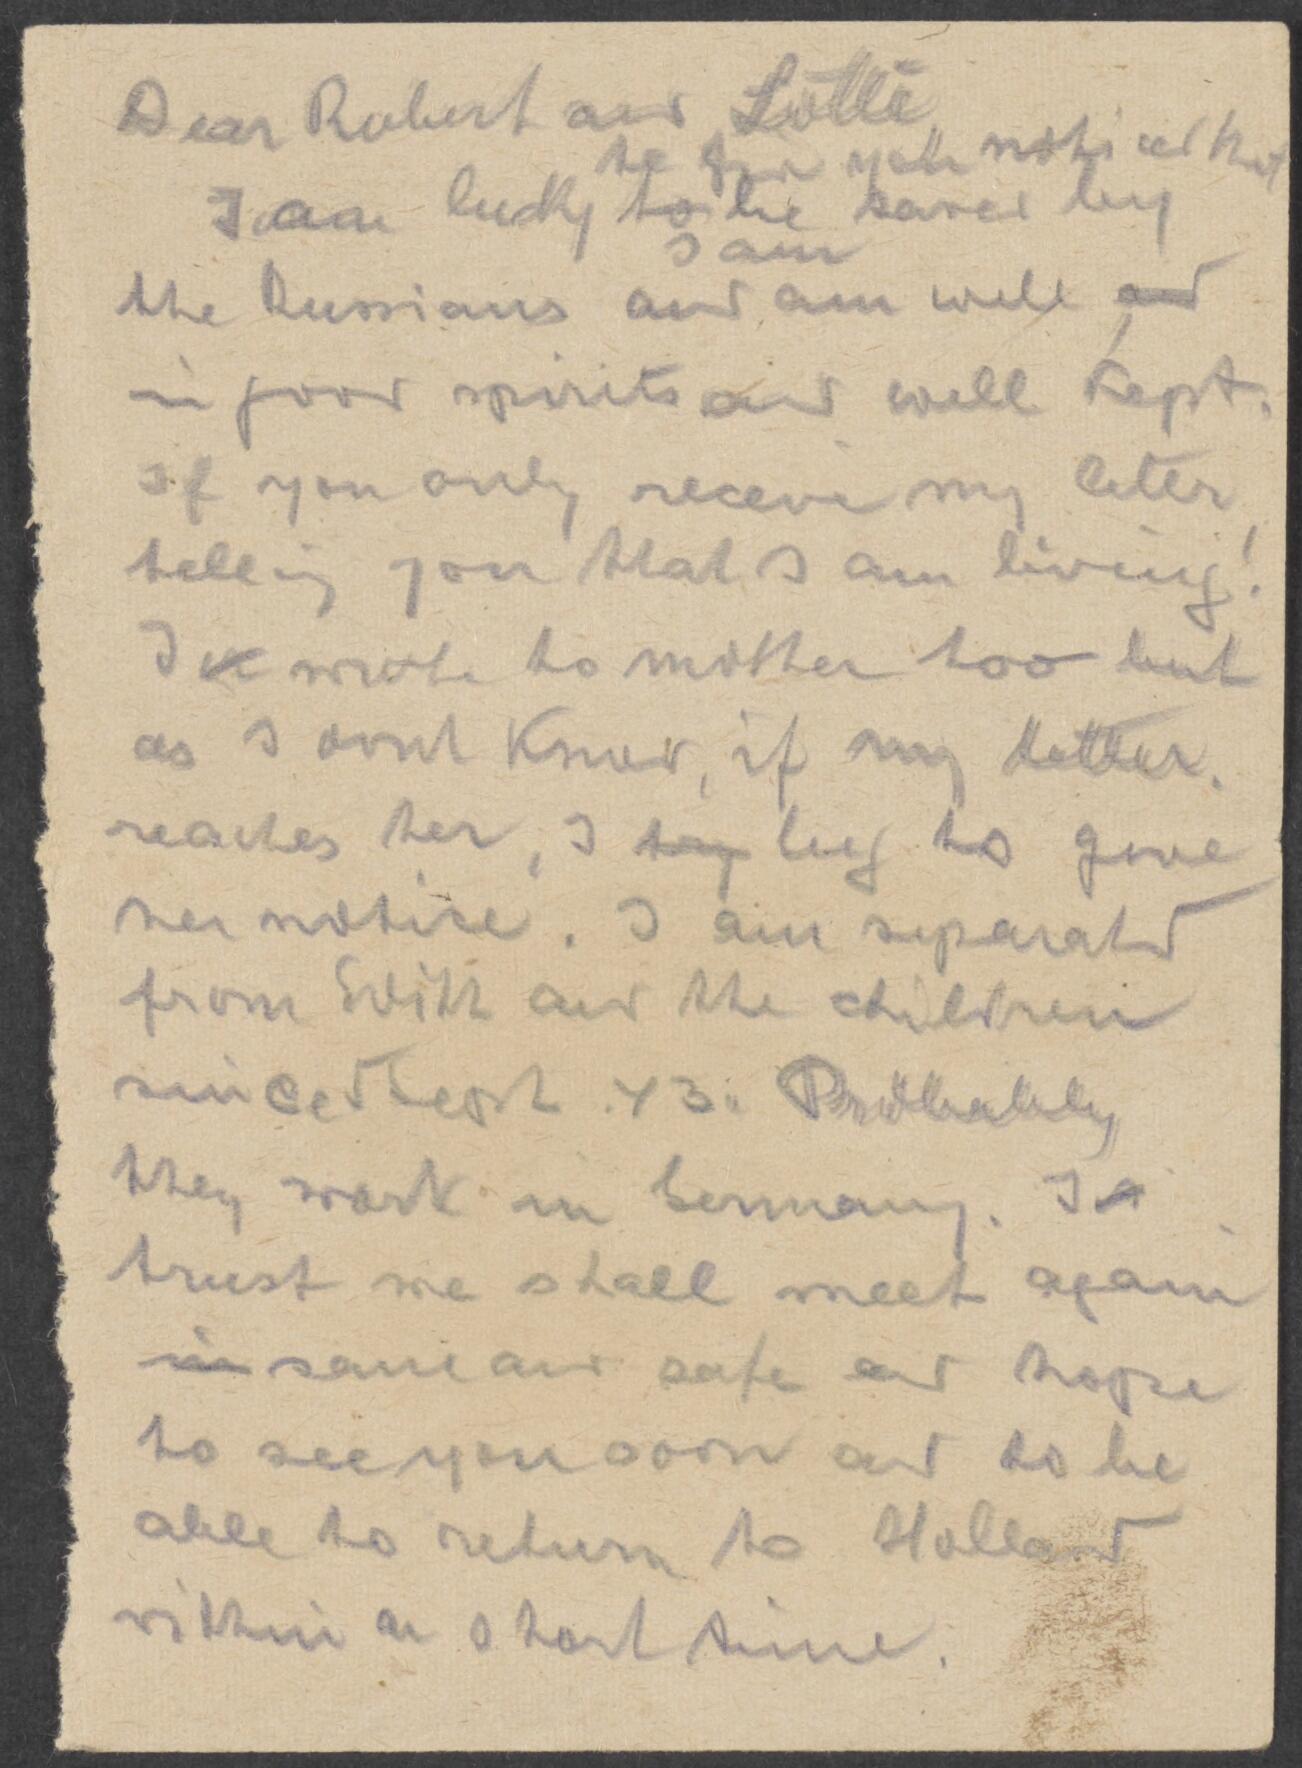 Dear Robert and Lotte
to give you notice that
I am lucky to be saved by
I am
the Russians and am well and
in good spirits and well kept.
If you only receive my leter
telling you that I am living!
I wrote to mother too but
as I dont know, if my letter
reaches her, I beg to give
her notice. I am separated
from Edith and the children
since Sept. 43. Probably
they work in Germany. I
trust we shall meet again
in sane and safe and hope
to see you soon and to be
able to return to Holland
within a short time.